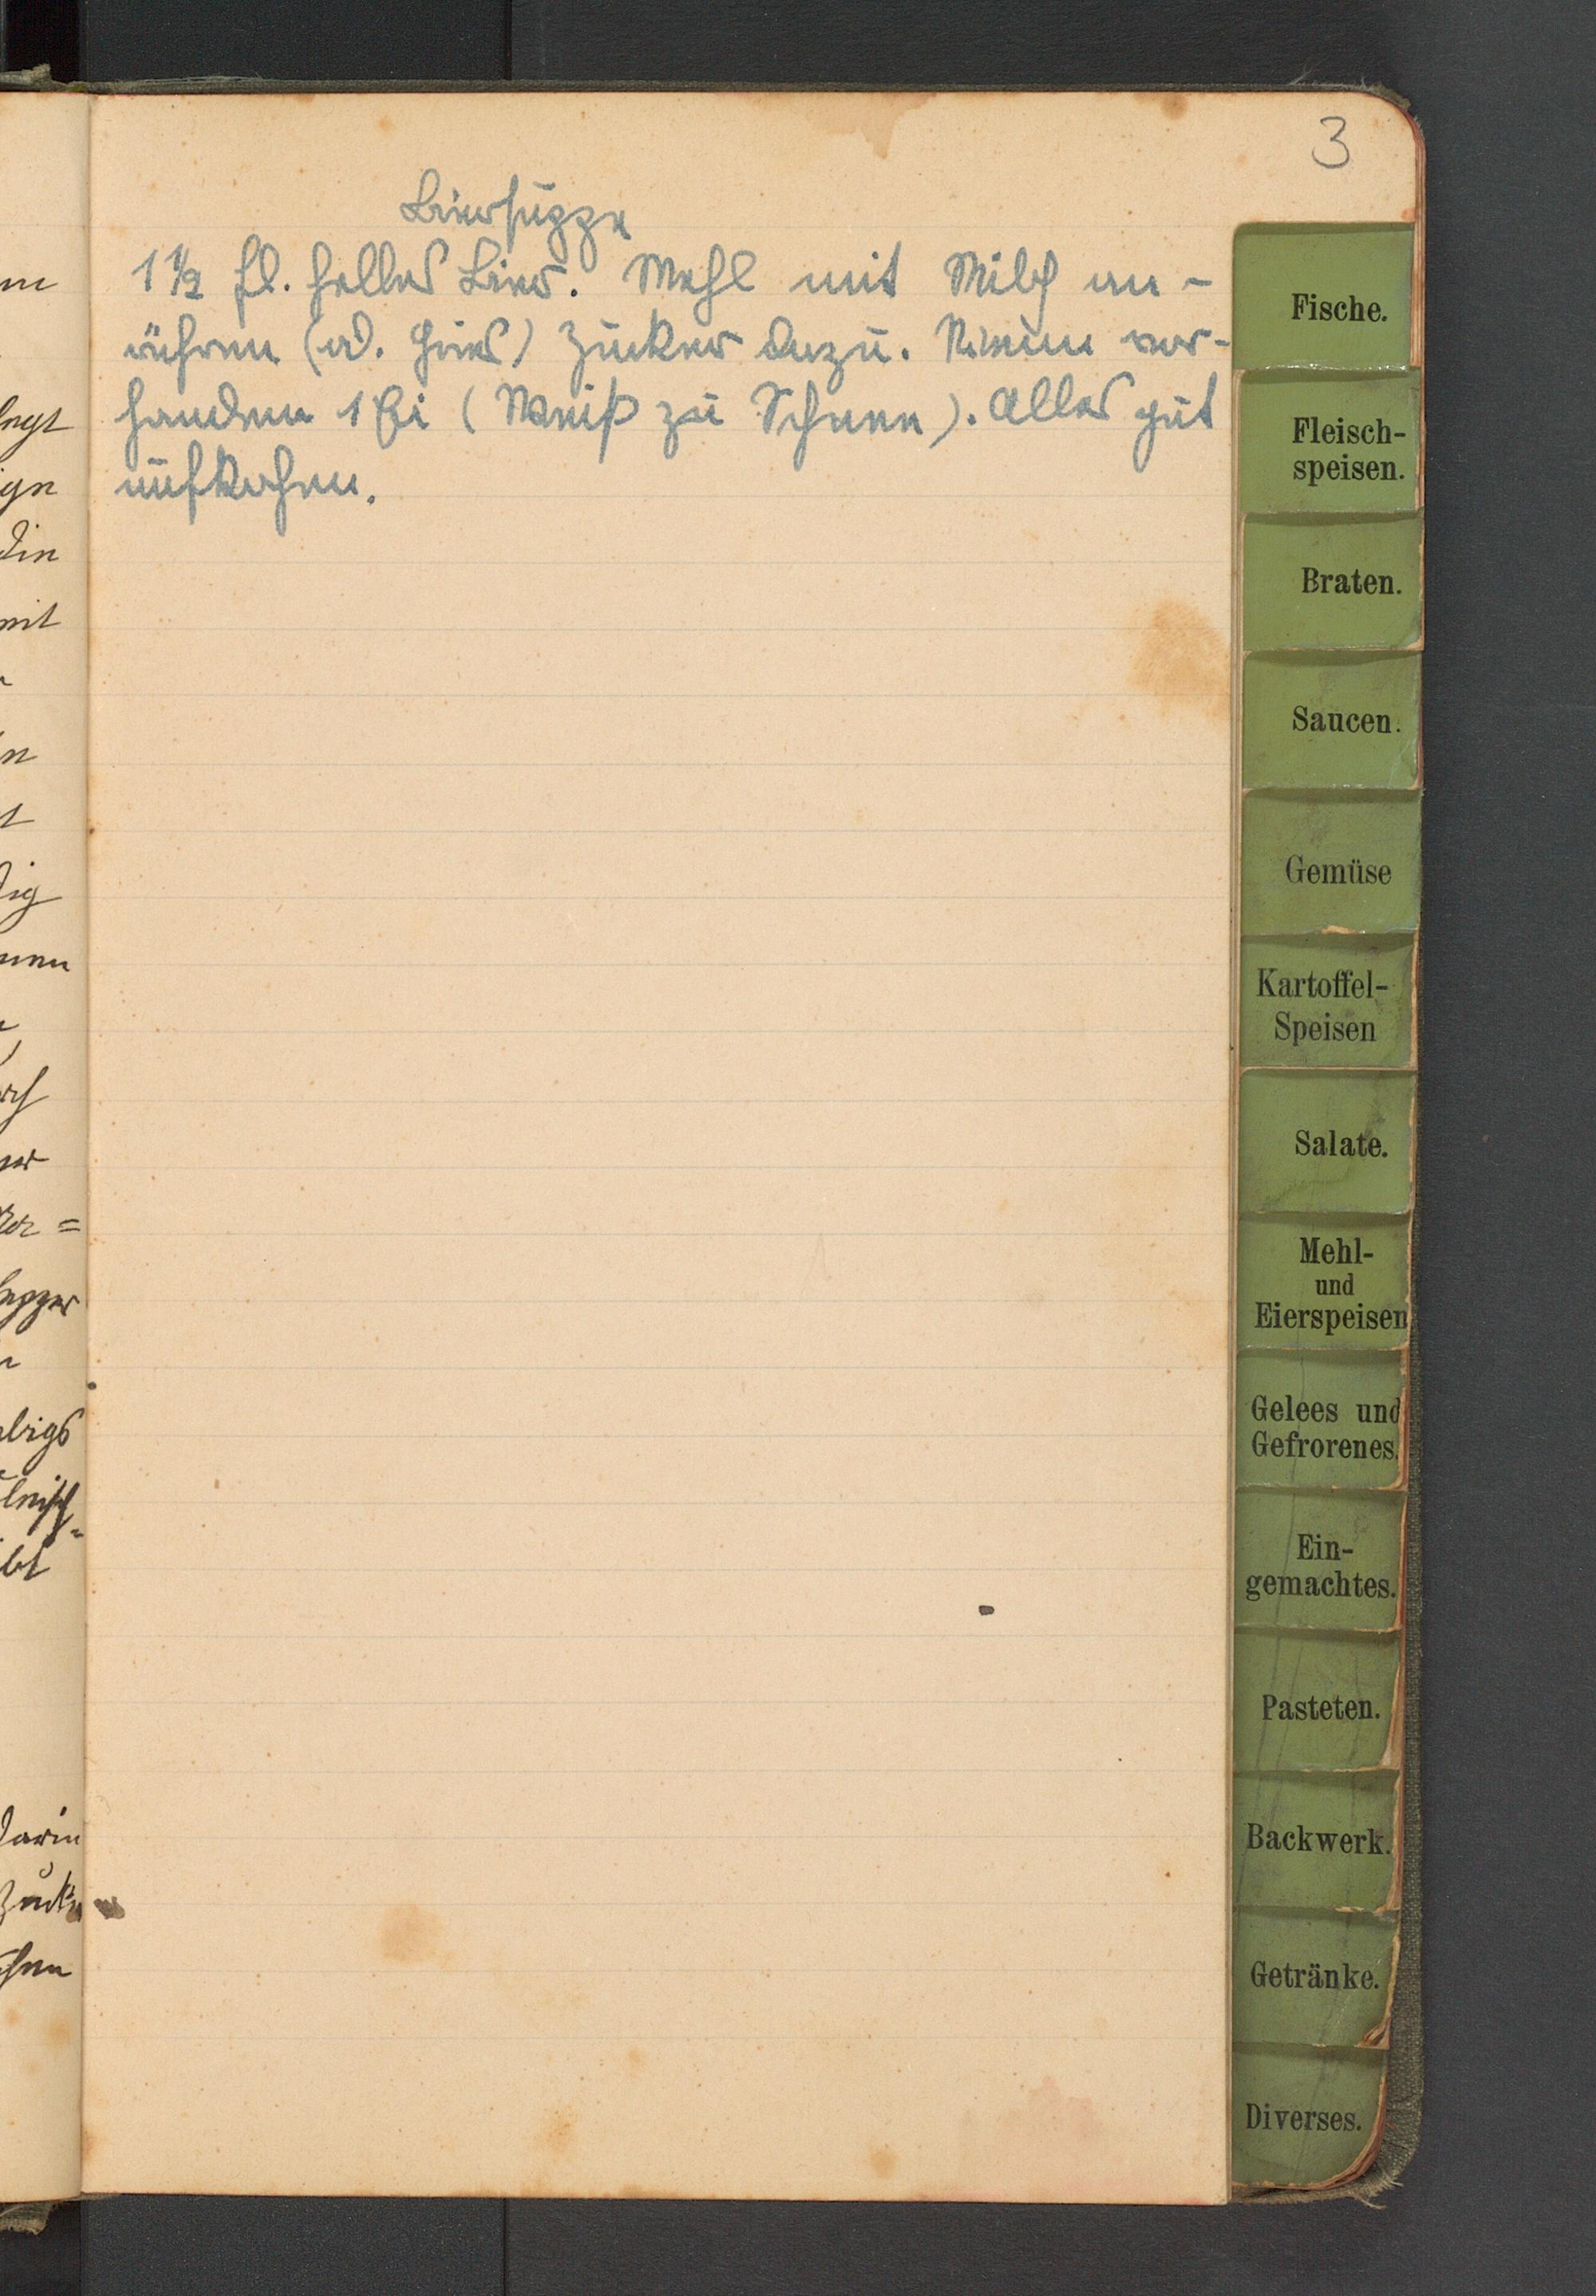 3
Biersuppe
1 1/2 Fl. helles Bier. Mehl mit Milch an-
rühren (od. Gries) Zucker dazu. Wenn vor-
handen 1 Ei (Weiß zu Schnee). Alles gut
aufkochen.
Fische.
Fleisch-
speisen.
Braten.
Saucen.
Gemüse
Kartoffel-
Speisen
Salate.
Mehl-
und
Eierspeisen
Gelees und
Gefrorenes.
Ein-
gemachtes.
Pasteten.
Backwerk.
Getränke.
Diverses.